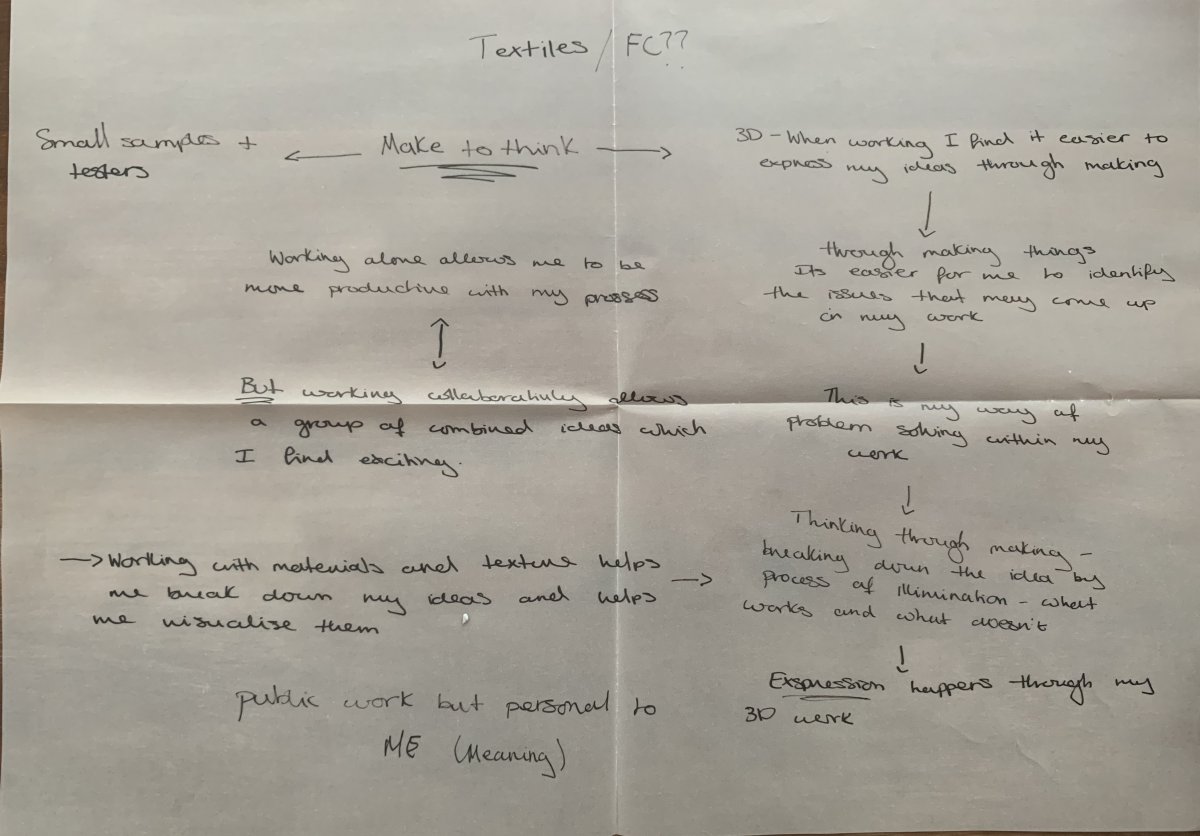 Textiles / FC??
Small samples +
testers
Make to think
3D - When working I find it easier to
express my ideas through making
through making things
Its easier for me to identify
the issues that may come up
in my work
This is my way of
problem solving within my
work
Thinking through making -
breaking down the idea by
process of illimination - what
works and what doesn't
Exspression happens through my
3D work
Working alone allows me to be
more productive with my prosess
But working collaborativly allows
a group of combined ideas which
I find exciting.
Working with materials and texture helps
me break down my ideas and helps
me visualise them
public work but personal to
ME (Meaning)